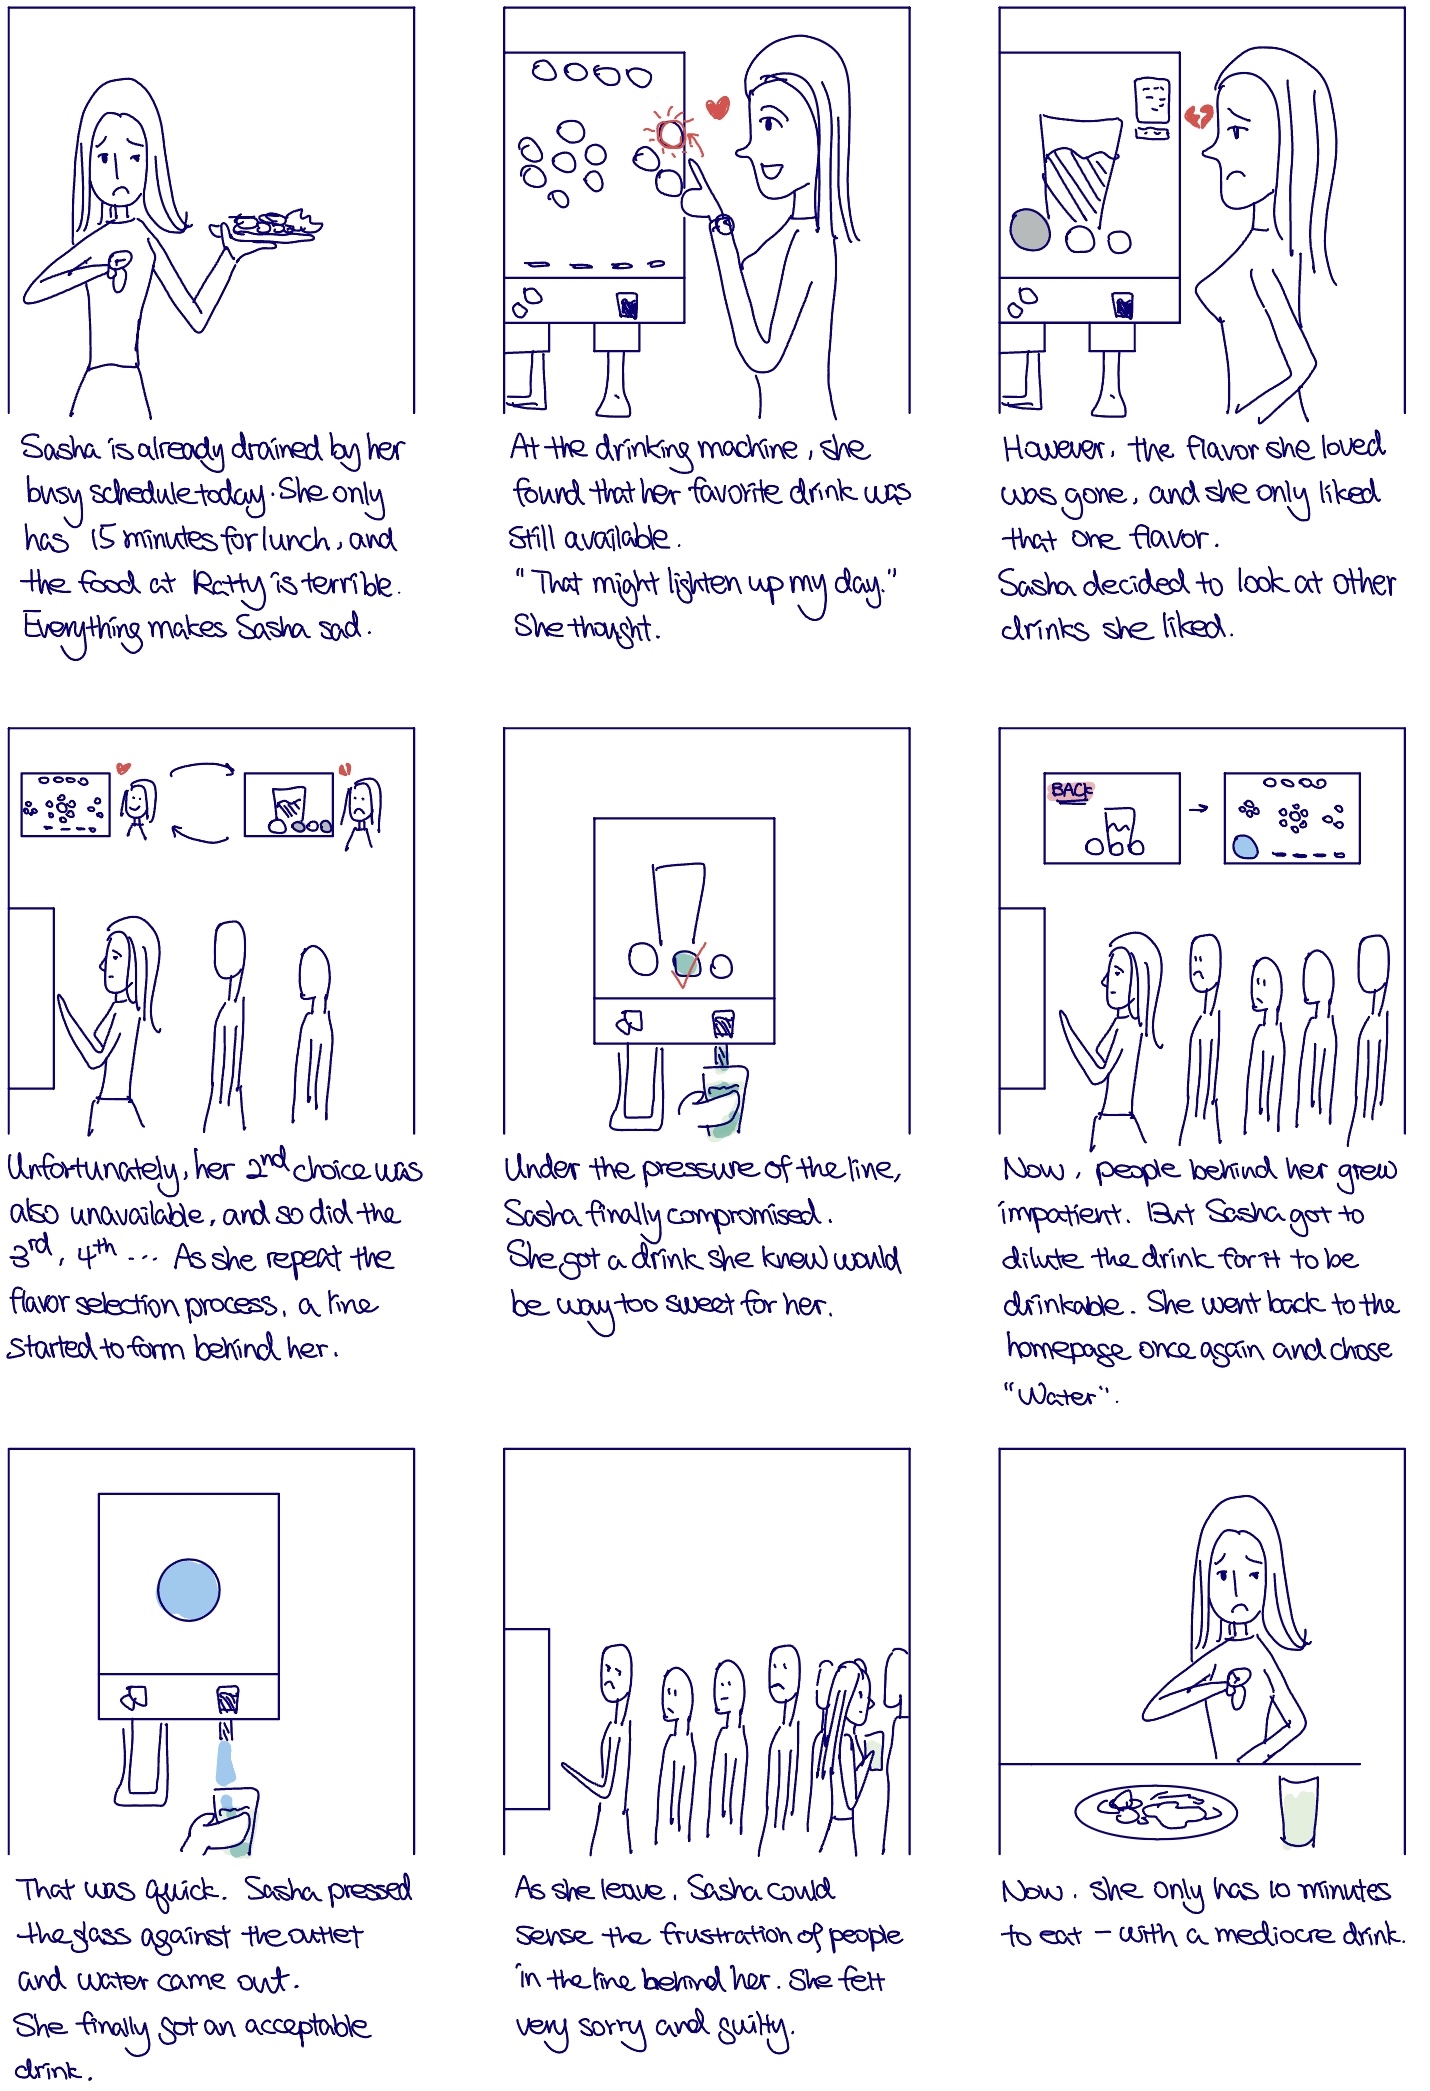 Sasha is already drained by her
busy schedule today. She only
has 15 minutes for lunch, and
the food at Ratty is terrible.
Everything makes Sasha sad.
At the drinking machine, she
found that her favorite drink was
still available.
"That might lighten up my day."
She thought.
However, the flavor she loved
was gone, and she only liked
that one flavor.
Sasha decided to look at other
drinks she liked.
Unfortunately, her 2nd choice was
also unavailable, and so did the
3rd, 4th ... As she repeat the
flavor selection process, a line
started to form behind her.
Under the pressure of the line,
Sasha finally compromised.
She got a drink she knew would
be way too sweet for her.
BACK
Now, people behind her grew
impatient. But Sasha got to
dilute the drink for it to be
drinkable. She went back to the
homepage once again and chose
"Water".
That was quick. Sasha pressed
the glass against the outlet
and water came out.
She finally got an acceptable
drink.
As she leave, Sasha could
sense the frustration of people
in the line behind her. She felt
very sorry and guilty.
Now, she only has 10 minutes
to eat – with a mediocre drink.